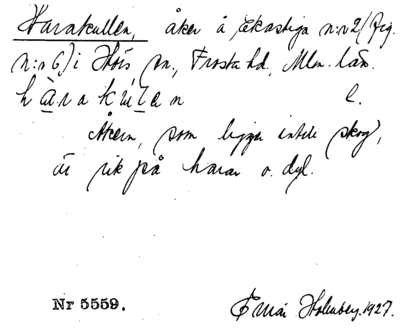 Harakullen, åker å Ekastiga n:r 2 (fig.
n:o 6) i Hörs sn., Frosta hd., Mlm. län.
hàrakúlen l.
Åkern, som ligger intill skog,
är rik på harar o. dyl.
Nr 5559. Holmberg. 1927.